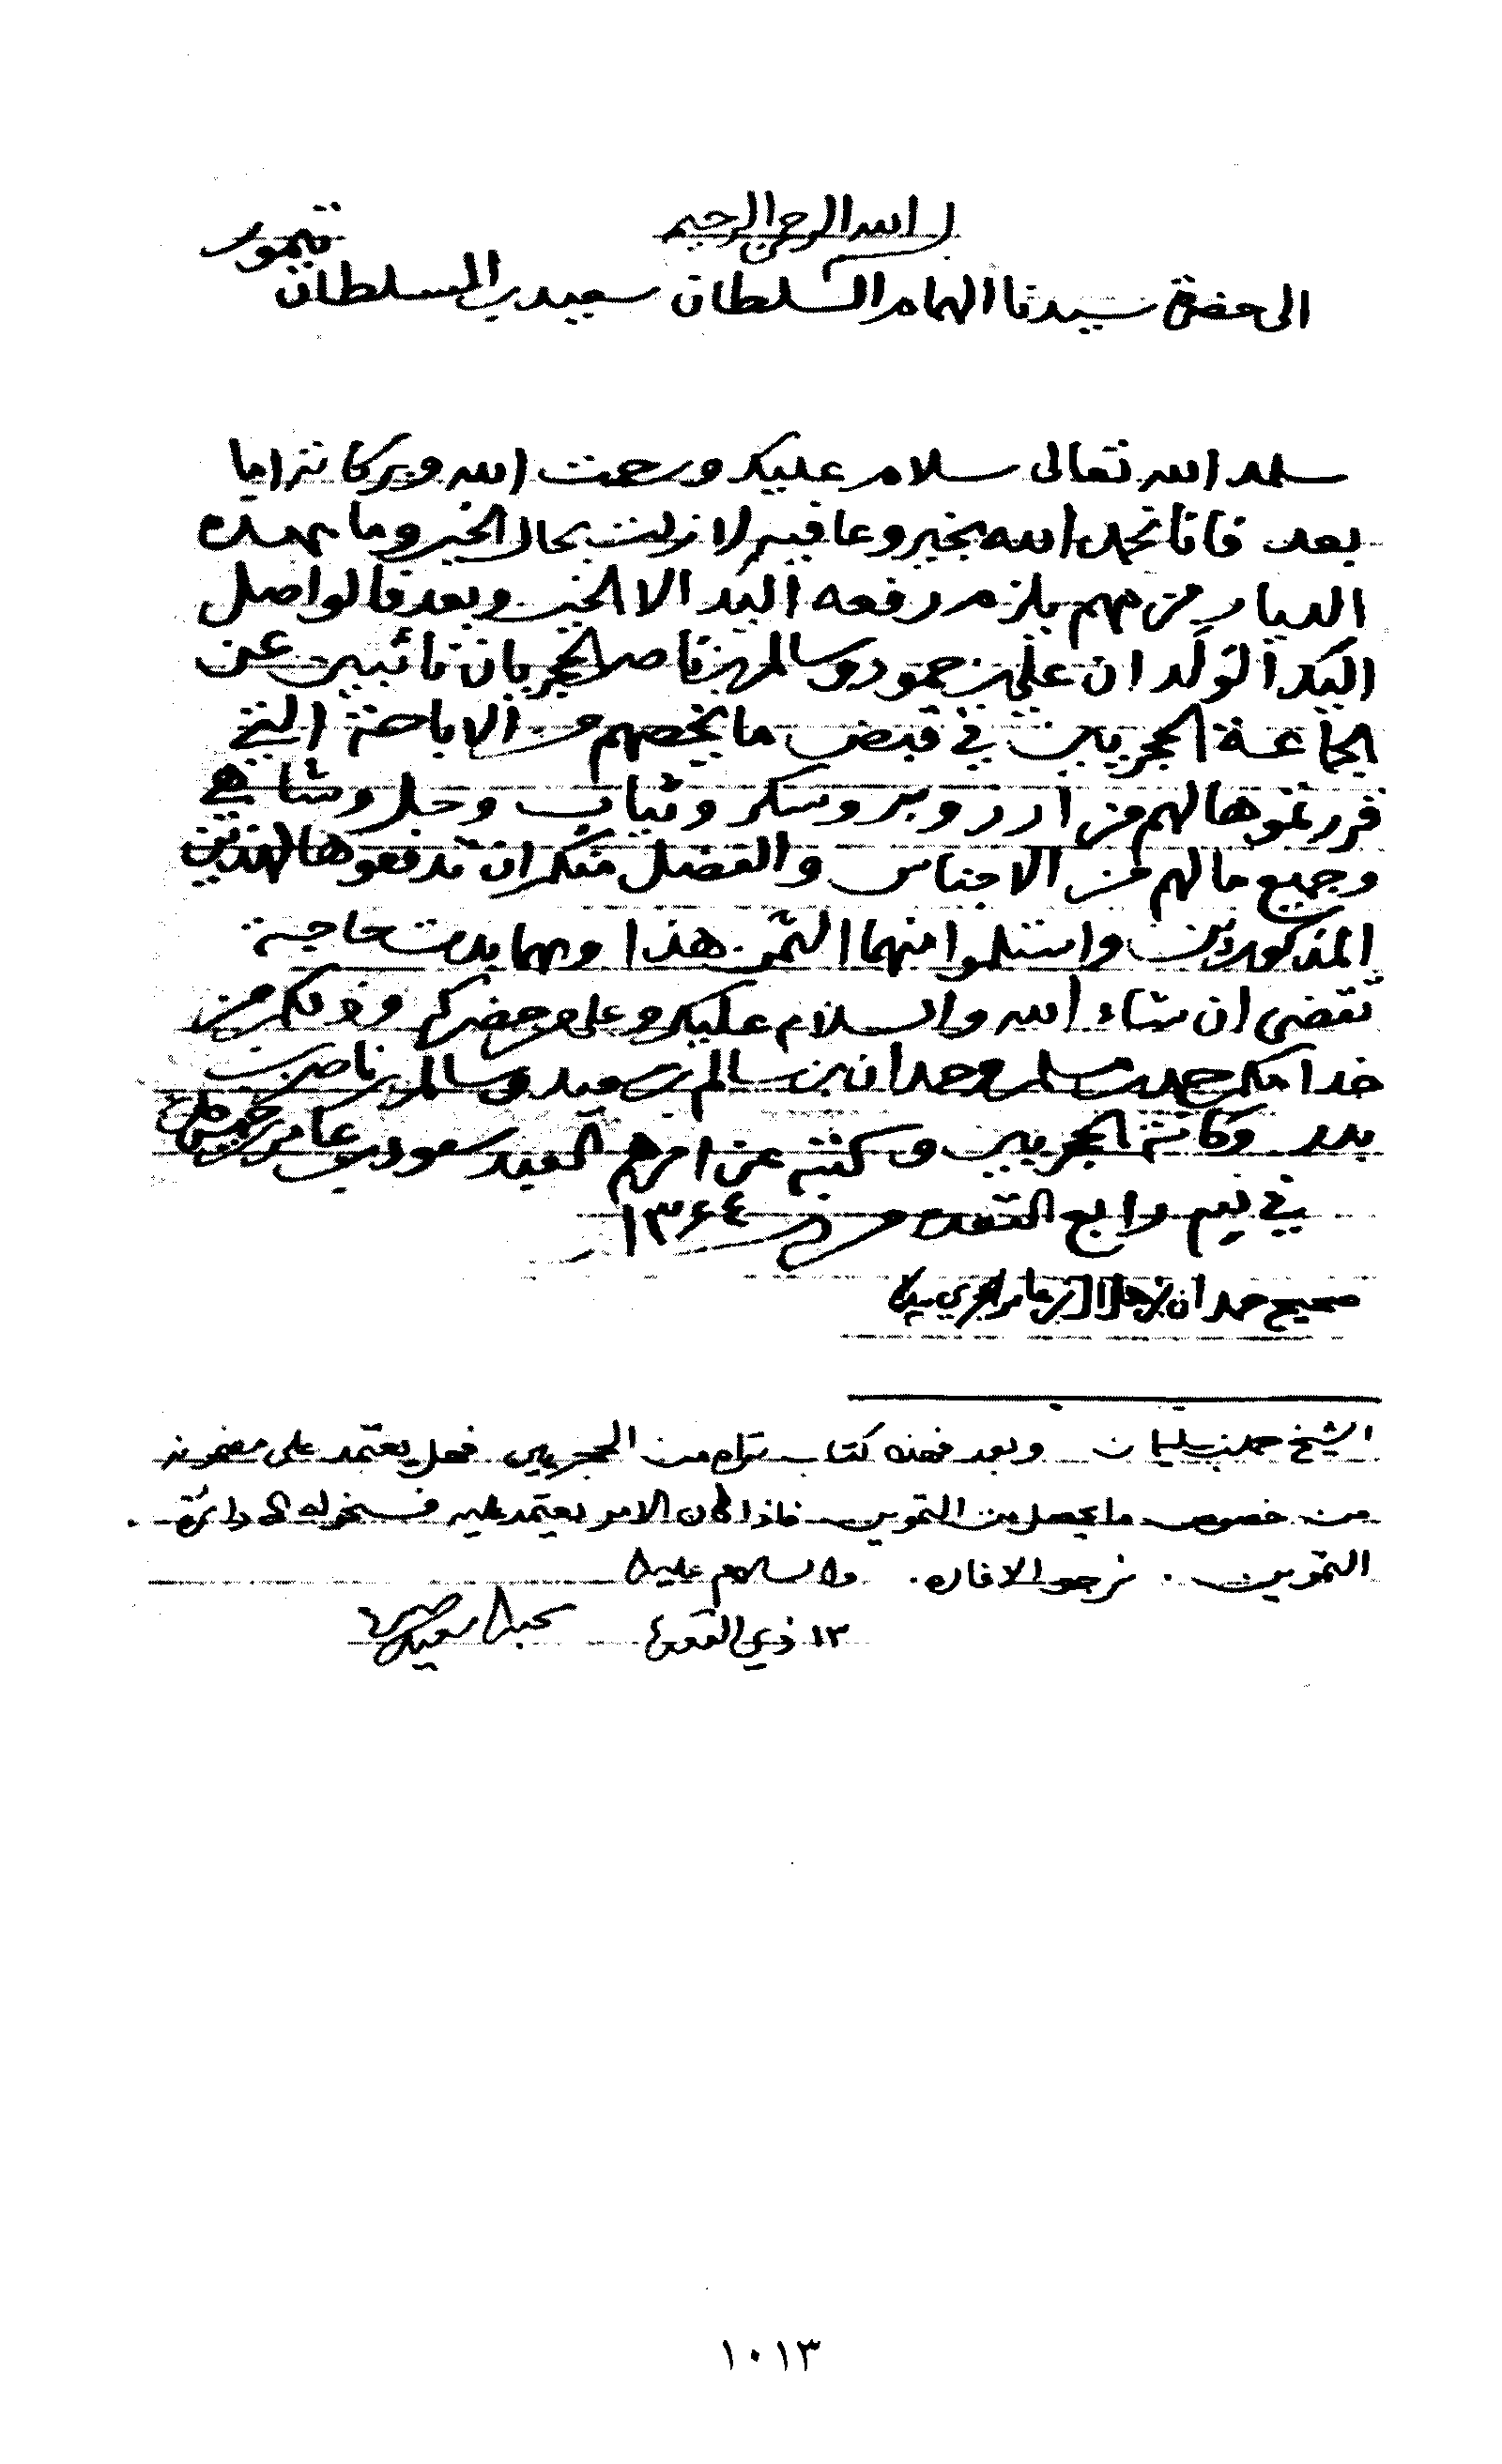 بسم الله الرحمن الرحيم
الى حضرة سيدنا الهمام السلطان سعيد بن السلطان تيمور
سلمه الله تعالى سلام عليك ورحمت الله وبركاته اما
بعد فانا نحمد الله بخير وعافيه لا زلت بحال الخير وما بهذه
الديار من مهم يلزم رفعه اليك الا الخير وبعد فالواصل
اليك الولدان علي بن حمود وسالم بن ناصر الحجريان نائبين عن
الجماعة الحجريين في قبض ما يخصهم من الاباحة التي
قررتموها لهم من ارز وبر وسكر وثياب وحل وشاهي
وجميع ما لهم من الاجناس والفضل منكم ان تدفعوها لهذين
المذكورين واستلموا منهما الثمن هذا ومهما بدت حاجة
تقضى ان شاء الله والسلام عليك وعلى من حضركم وذلكم من
خدامكم حمد بن مسلم وحمدان بن سالم بن سعيد وسالم بن ناصر بن
بدر وكافة الحجريين وكتبه عن امرهم العبد سعود بن عامر بن خميس
في يوم رابع القعدة من سنة ١٣٦٤
صحيح حمدان بن هلال بن عامر الحجري بيده
الشيخ حمد بن سليمان وبعد فهذه كتاب تراه من الحجريين فهل يعتمد على مضمونه
من خصوص ما يحصل من التموين فاذا كان الامر يعتمد عليه فسنحوله الى دائرة
التموين . نرجو الافاده . والسلام عليك
١٣ ذي القعدة
١٠١٣